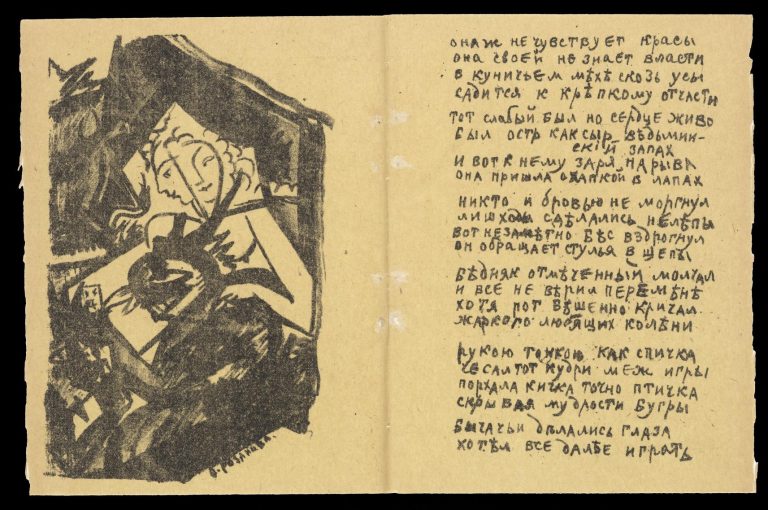 О. Розанова.
она ж не чувствует красы
она своей не знает власти
в куничьем мѣхѣ сквозь усы
садится к крѣпкому отчасти
тот слабый был но сердце живо
был остр как сыр вѣдьмин-
ский запах
и вот к нему заря нарыва
она пришла охапкой в лапах
никто и бровью не моргнул
лиш ходы сдѣлались нелѣпы
вот незамѣтно бѣс вздрогнул
он обращает стулья в щепы
бѣдняк отмѣченный молчал
и все не вѣрил перемѣнѣ
хотя рот бѣшенно кричал
жаркого любящих колѣни
рукою тонкою как спичка
чесал тот кудри меж игры
порхала кичка точно птичка
скрывая мудрости бугры
бычачьи дѣлались глаза
хотѣл все далѣе играть